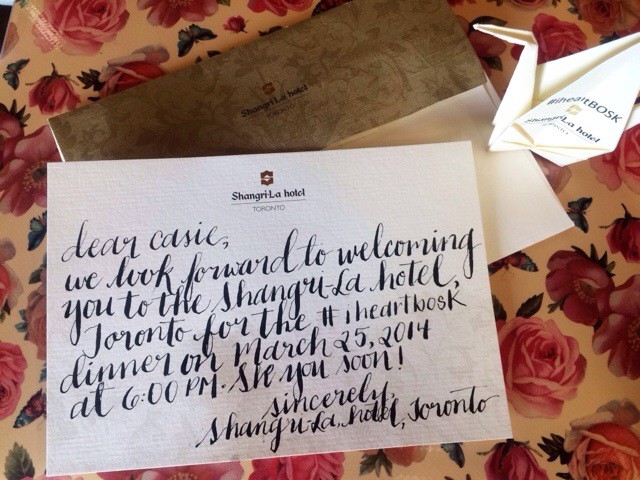 Shangri-La hotel
TORONTO
#iheartBOSK
Shangri-La hotel
TORONTO
Shangri-La hotel
TORONTO
dear casie,
we look forward to welcoming
you to the Shangri-La hotel,
Toronto for the #iheartbosk
dinner on March 25, 2014
at 6:00 PM. See you soon!
sincerely,
Shangri-La hotel, Toronto